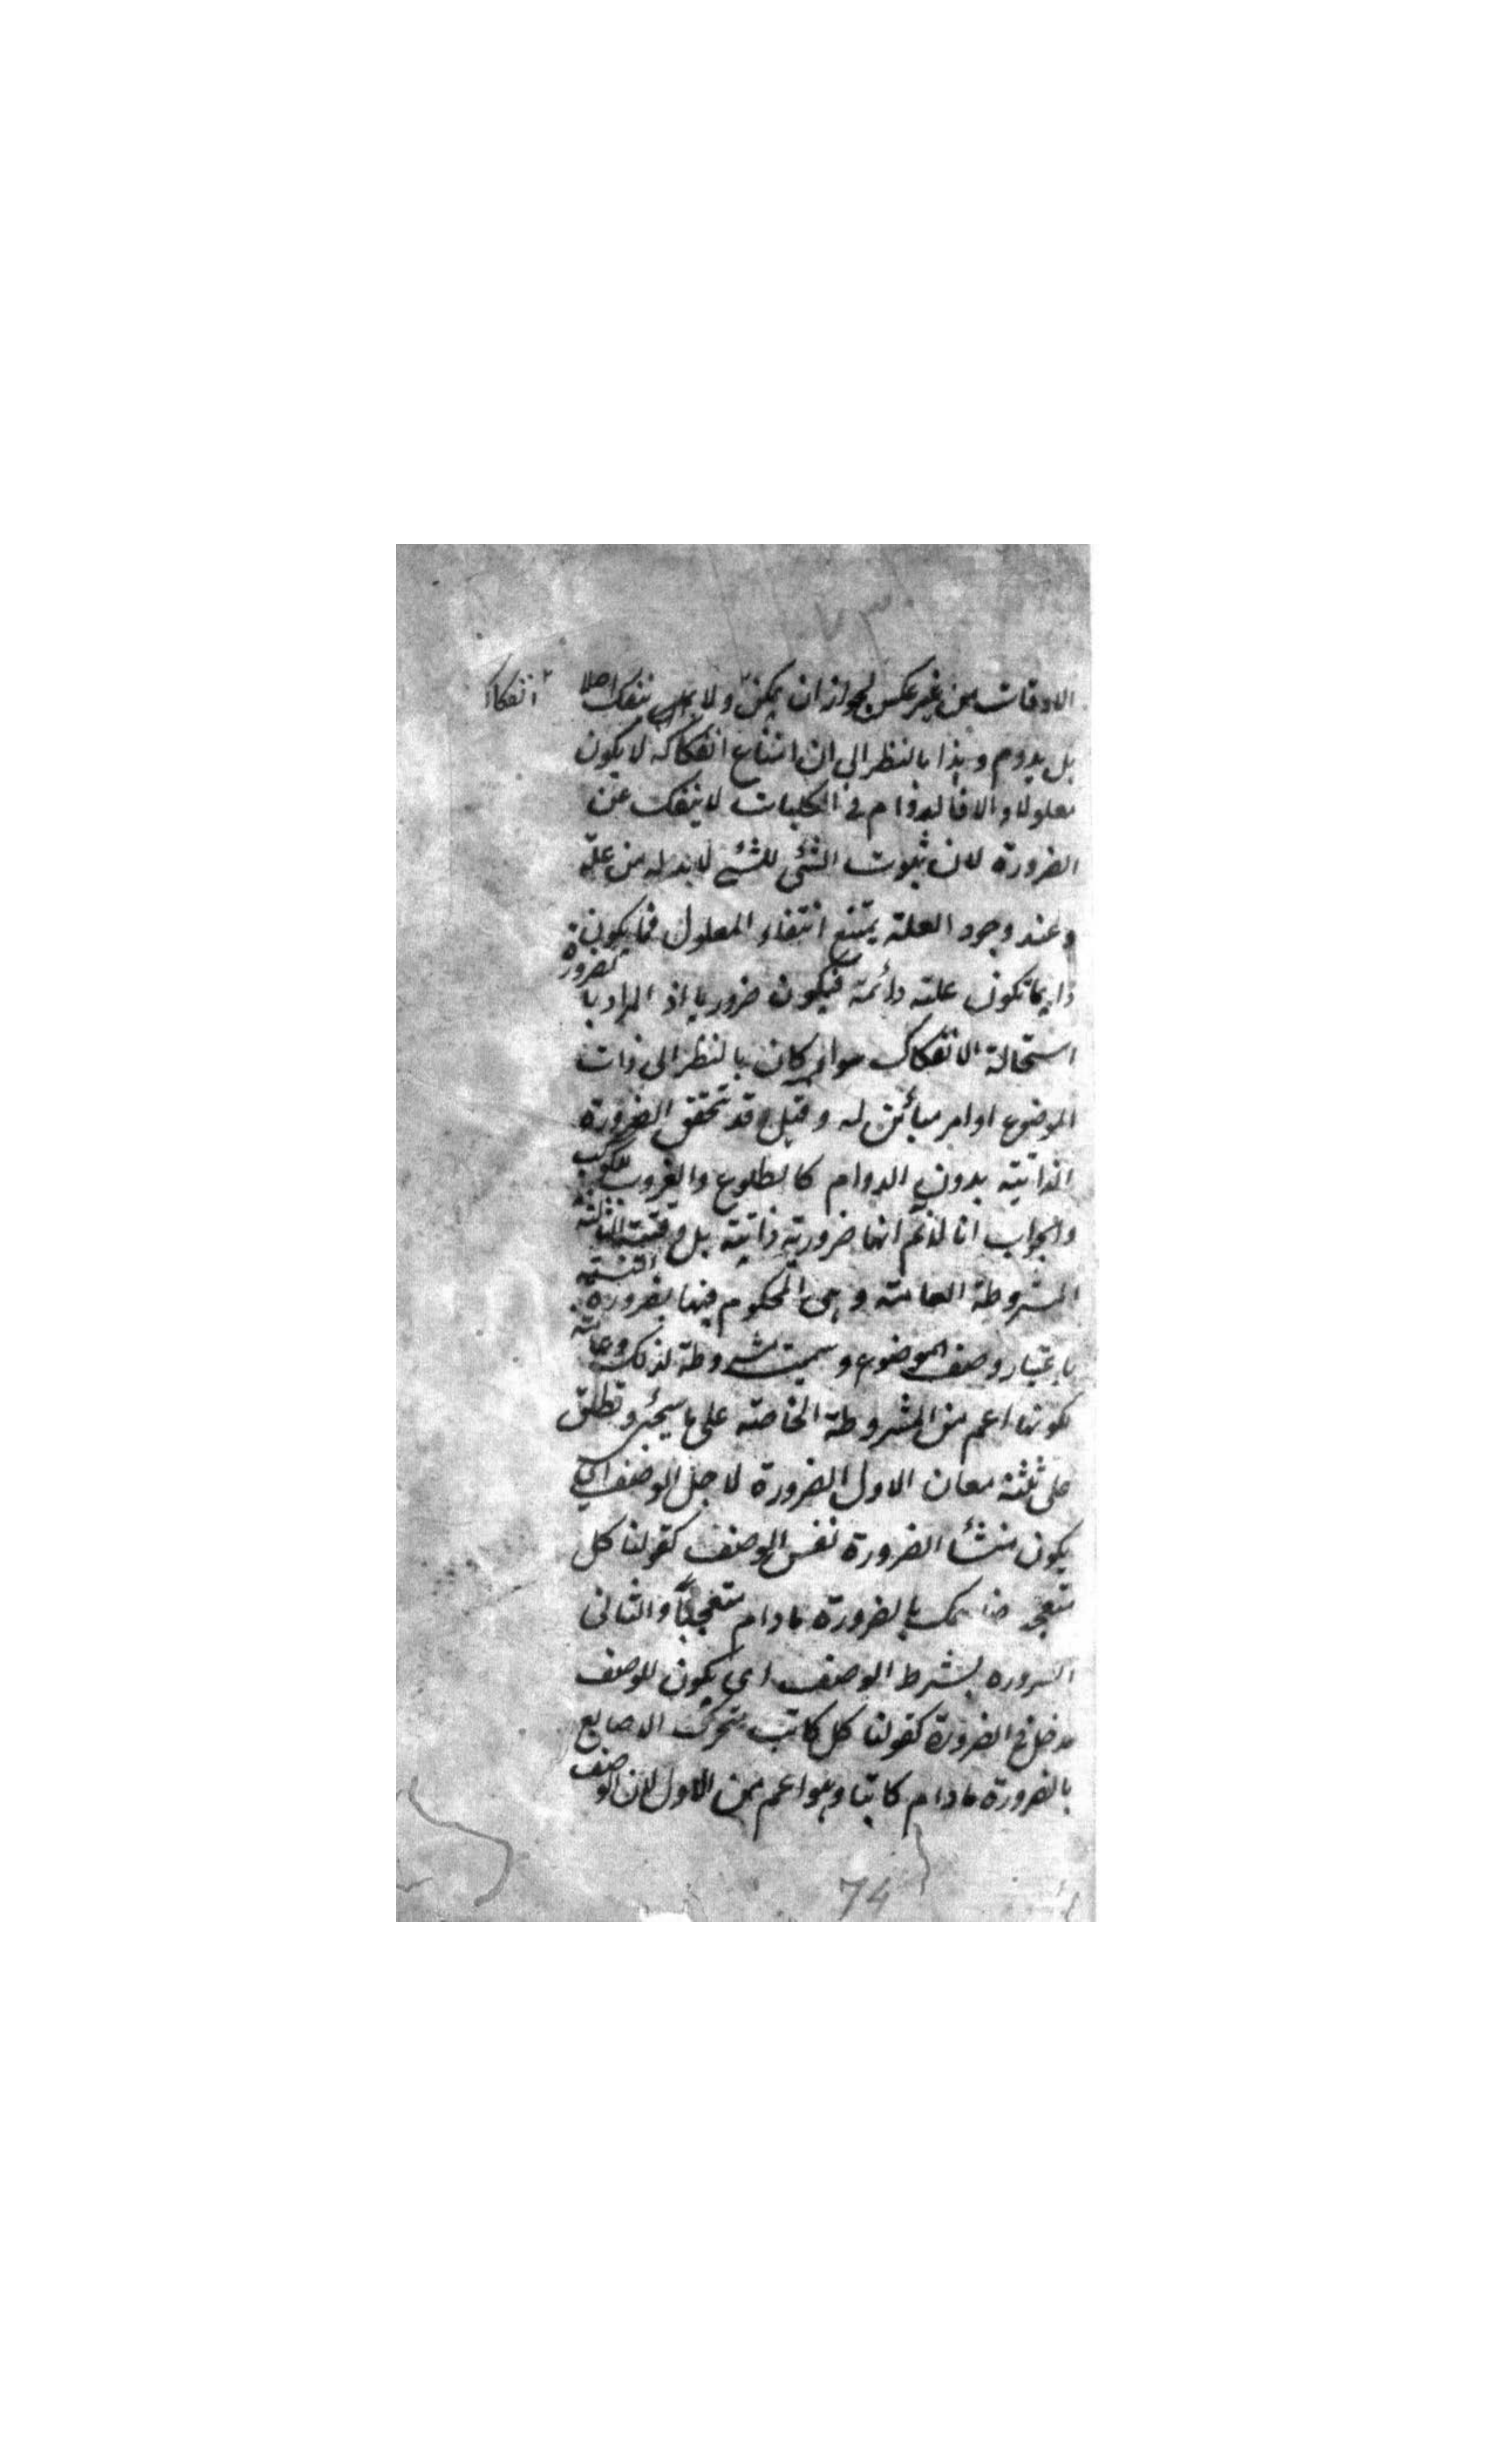 ٧٣
الاوقات من غير عكس لجواز ان يمكن ولا ينفك اصلا
انفكاكا
بل يدوم وهذا بالنظر الى ان امتناع انفكاكه لا يكون
معلولا والا فالدوام فى الكليات لا ينفك عن
الضرورة لان ثبوت الشئ للشئ لابد له من علة
وعند وجود العلة يمتنع انتفاء المعلول فما يكون
دايما تكون علته دائمة فيكون ضروريا اذ المراد بالضرورة
استحالة الانفكاك سواء كان بالنظر الى ذات
الموضوع او امر مبائن له وقيل قد تحقق الضرورة
الذاتية بدون الدوام كالطلوع والغروب للكوكب
والجواب انا لا نم انها ضرورية ذاتية بل وقتية الثالثة
المشروطة العامة وهى المحكوم فيها بضرورة النسبة
باعتبار وصف الموضوع وسميت مشروطة لذلك وعامة
لكونها اعم من المشروطة الخاصة على ما سيجئ وتطلق
على ثلثة معان الاول الضرورة لاجل الوصف اى
يكون منشأ الضرورة نفس الوصف كقولنا كل
متعجب ضاحك بالضرورة مادام متعجبا والثانى
الضرورة بشرط الوصف اى يكون للوصف
مدخل فى الضرورة كقولنا كل كاتب متحرك الاصابع
بالضرورة مادام كاتبا وهو اعم من الاول لان الوصف
74